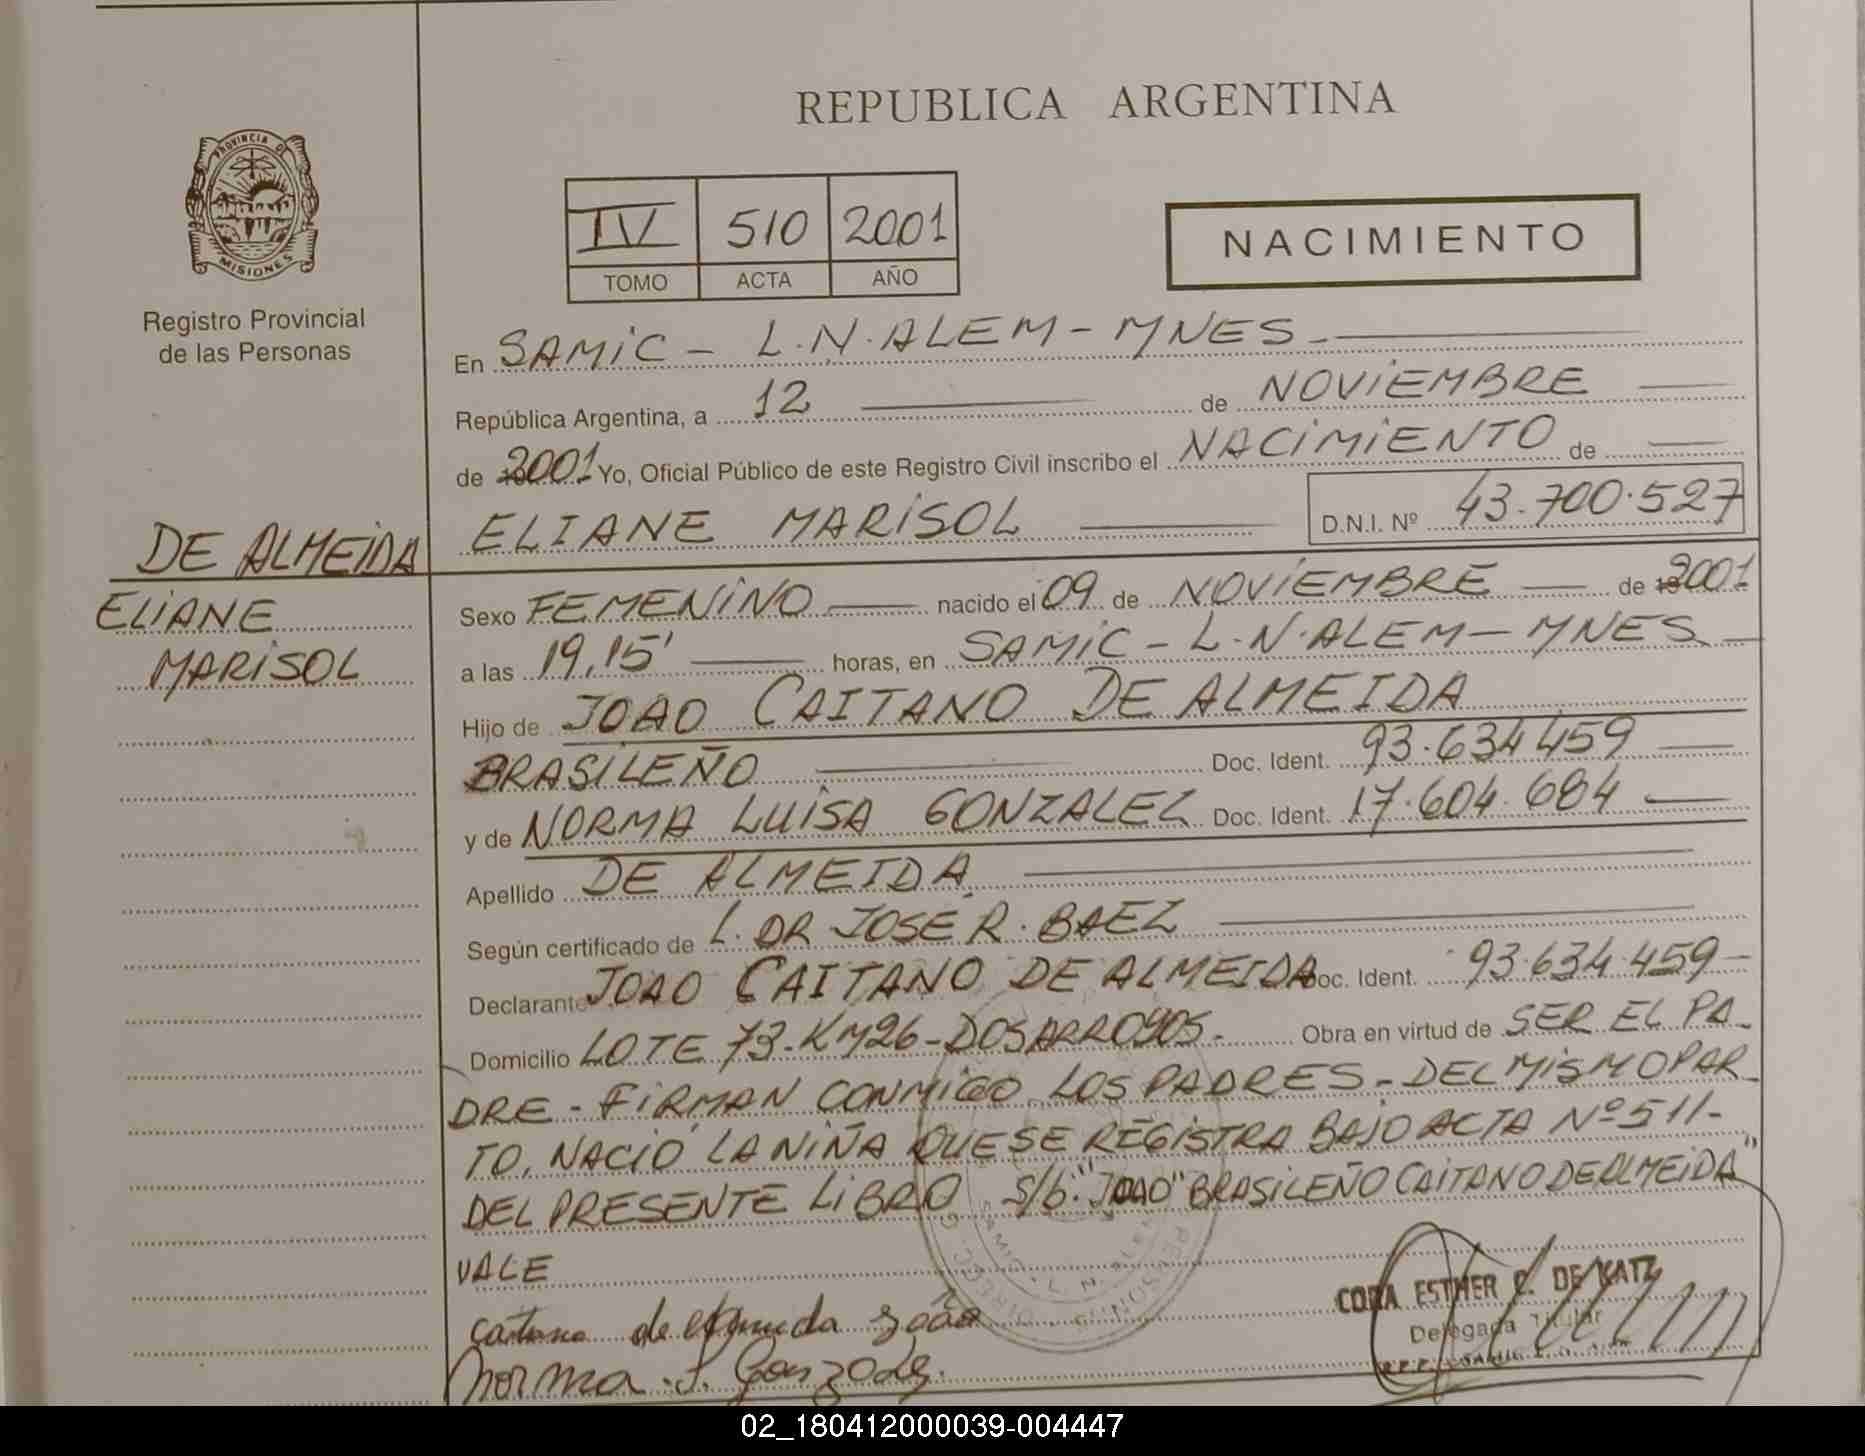 REPUBLICA ARGENTINA
PROVINCIA DE
MISIONES
Registro Provincial
de las Personas
IV 510 2001
TOMO ACTA AÑO
NACIMIENTO
En SAMIC - L.N.ALEM - MNES.
República Argentina, a 12 de NOVIEMBRE
de 2001 Yo, Oficial Público de este Registro Civil inscribo el NACIMIENTO de
ELIANE MARISOL D.N.I. Nº 43.700.527
DE ALMEIDA
ELIANE
MARISOL
Sexo FEMENINO nacido el 09 de NOVIEMBRE de 2001
a las 19,15' horas, en SAMIC - L.N.ALEM - MNES
Hijo de JOAO CAITANO DE ALMEIDA
BRASILEÑO Doc. Ident. 93.634.459
y de NORMA LUISA GONZALEZ Doc. Ident. 17.604.684
Apellido DE ALMEIDA
Según certificado de L. DR JOSE R. BAEZ
Declarante JOAO CAITANO DE ALMEIDA Doc. Ident. 93.634.459
Domicilio LOTE 73-KM26-DOS ARROYOS. Obra en virtud de SER EL PA-
DRE - FIRMAN CONMIGO LOS PADRES - DEL MISMO PAR-
TO, NACIÓ LA NIÑA QUE SE REGISTRA BAJO ACTA Nº 511-
DEL PRESENTE LIBRO S/b: "JOAO" BRASILEÑO CAITANO DE ALMEIDA"
VALE
Caitano de João
Norma L. Gonzalez.
CORA ESTHER C. DE KATZ
Delegada Titular
02_180412000039-004447